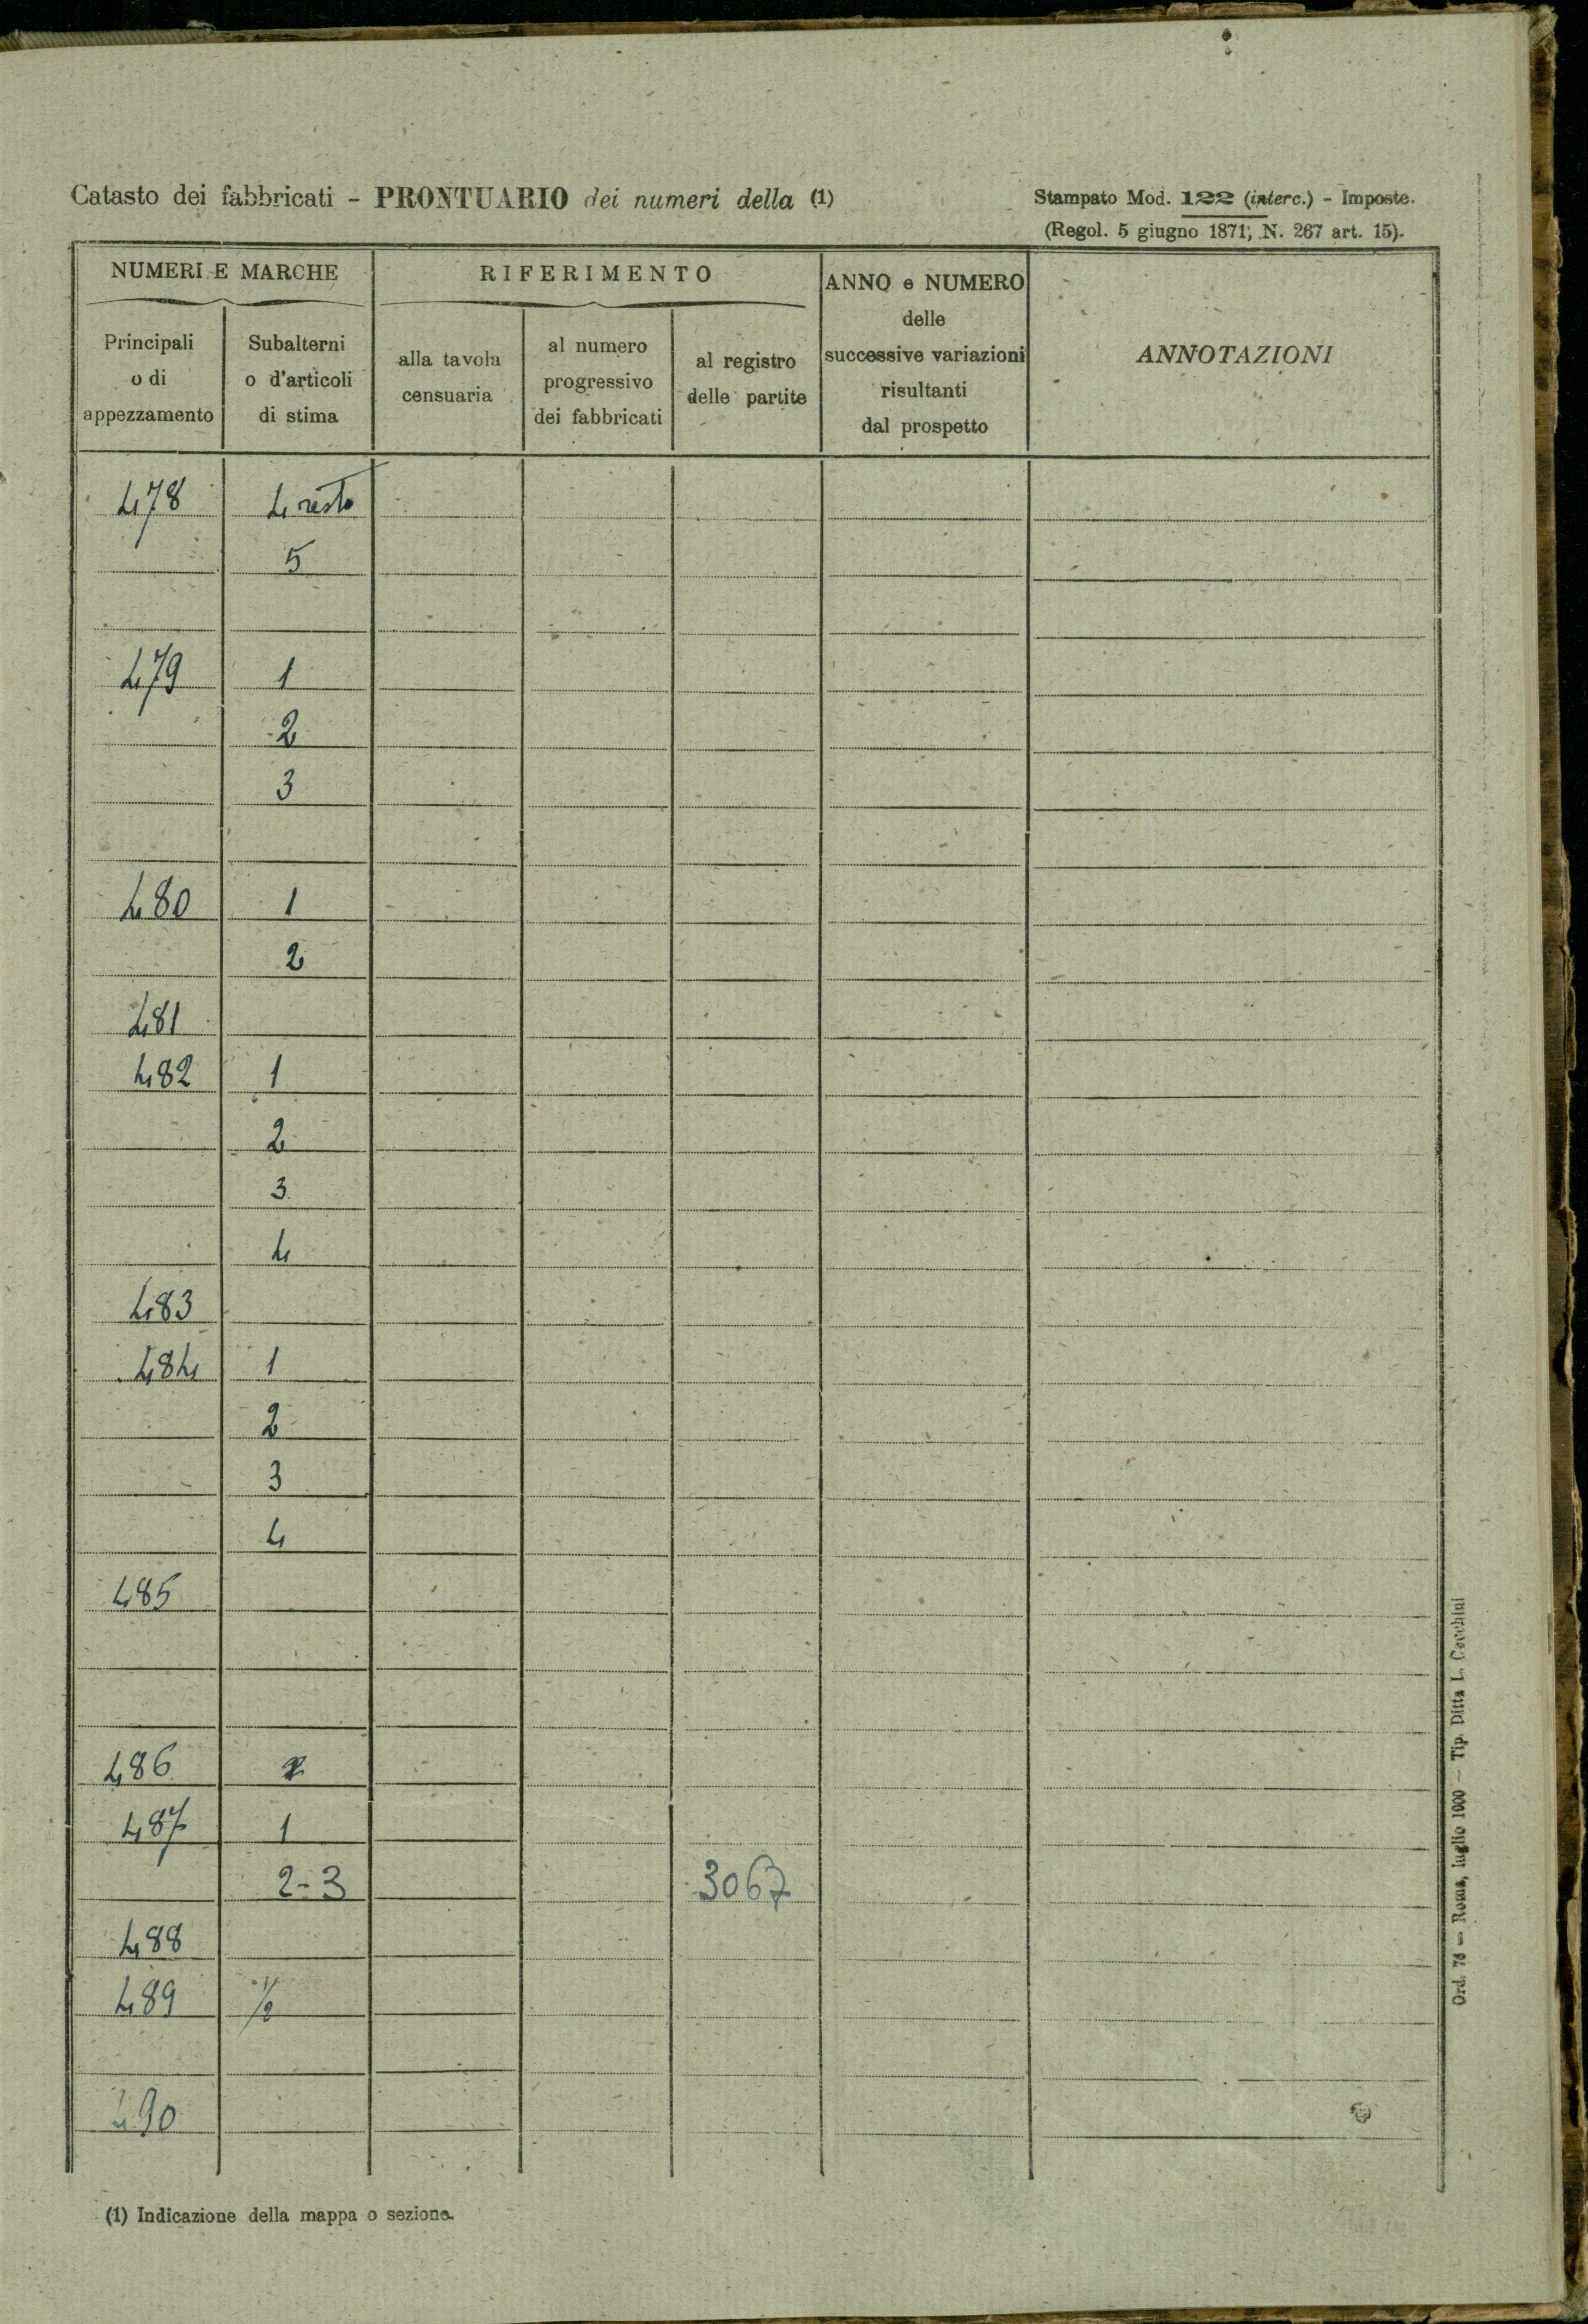 Catasto dei fabbricati - PRONTUARIO dei numeri della (1)
Stampato Mod. 122 (interc.) - Imposte.
(Regol. 5 giugno 1871, N. 267 art. 15).
NUMERI E MARCHE
RIFERIMENTO
ANNO e NUMERO
delle
successive variazioni
risultanti
dal prospetto
ANNOTAZIONI
Principali
o di
appezzamento
Subalterni
o d'articoli
di stima
alla tavola
censuaria
al numero
progressivo
dei fabbricati
al registro
delle partite
478 4 resto
5
479 1
2
3
480 1
2
481
482 1
2
3
4
483
484 1
2
3
4
485
486
487 1
2-3 3067
488
489 1/2
490
(1) Indicazione della mappa o sezione.
Ord. 78 — Roma, luglio 1900 — Tip. Ditta L. Cecchini